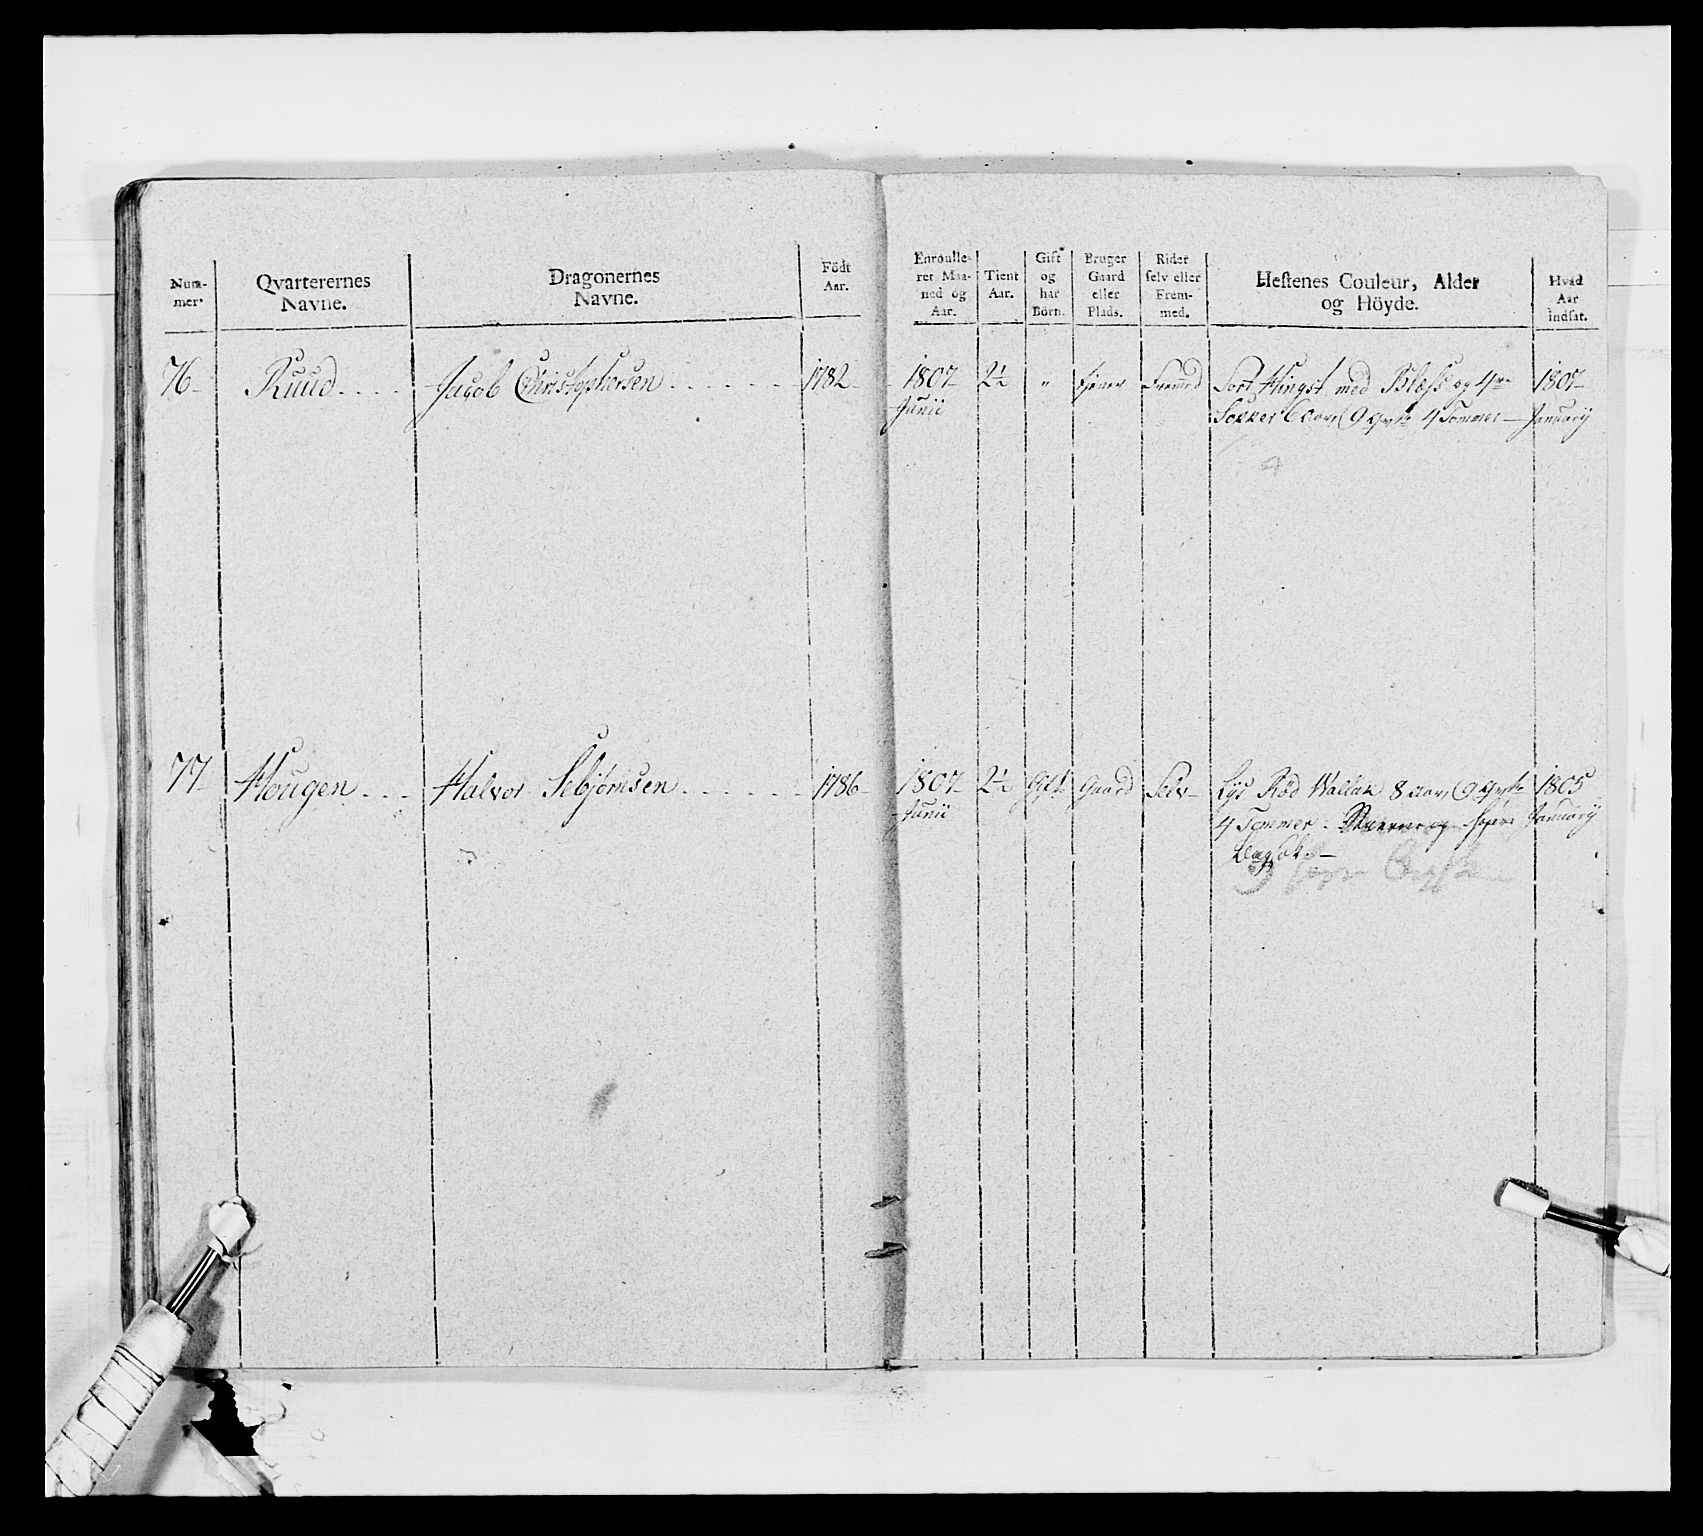 Num-
mer.
Qvarterernes
Navne.
Dragonernes
Navne.
Födt
Aar.
Enroulle-
ret Maa-
ned og
Aar.
Tient
Aar.
Gift
og
har
Börn.
Bruger
Gaard
eller
Plads.
Rider
selv eller
Frem-
med.
Hestenes Couleur, Alder
og Höyde.
Hvad
Aar
indsat.
76 Ruud Jacob Christophersen 1782 1807 2½ " tjener Fremed Sort Hingst med Blæss og 4re 1807
Junii Sokker 6 aar 9 qvtr 4 Tommer Januarij
77 Hougen Halvor Sebjørnsen 1786 1807 2½ Gift Gaard Selv Lys Rød Wallak 8 aar 9 qvtr 1805
Junii 4 Tommer Januarij